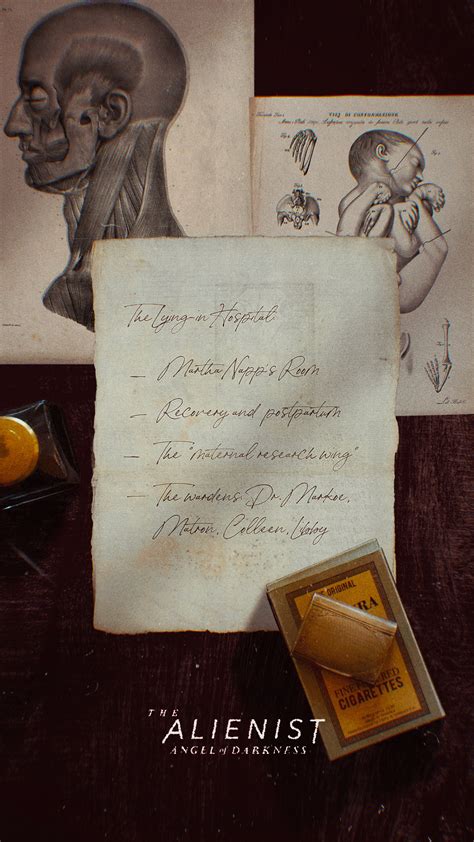 VIZJ DI CONFORMAZIONE
Fig. 1.
The Lying-in Hospital:
— Martha Napp's Room
— Recovery and postpartum
— The "maternal research wing"
— The wardens: Dr. Markoe,
Matron, Colleen, Libby
ORIGINAL
CIGARETTES
THE
ALIENIST
ANGEL of DARKNESS